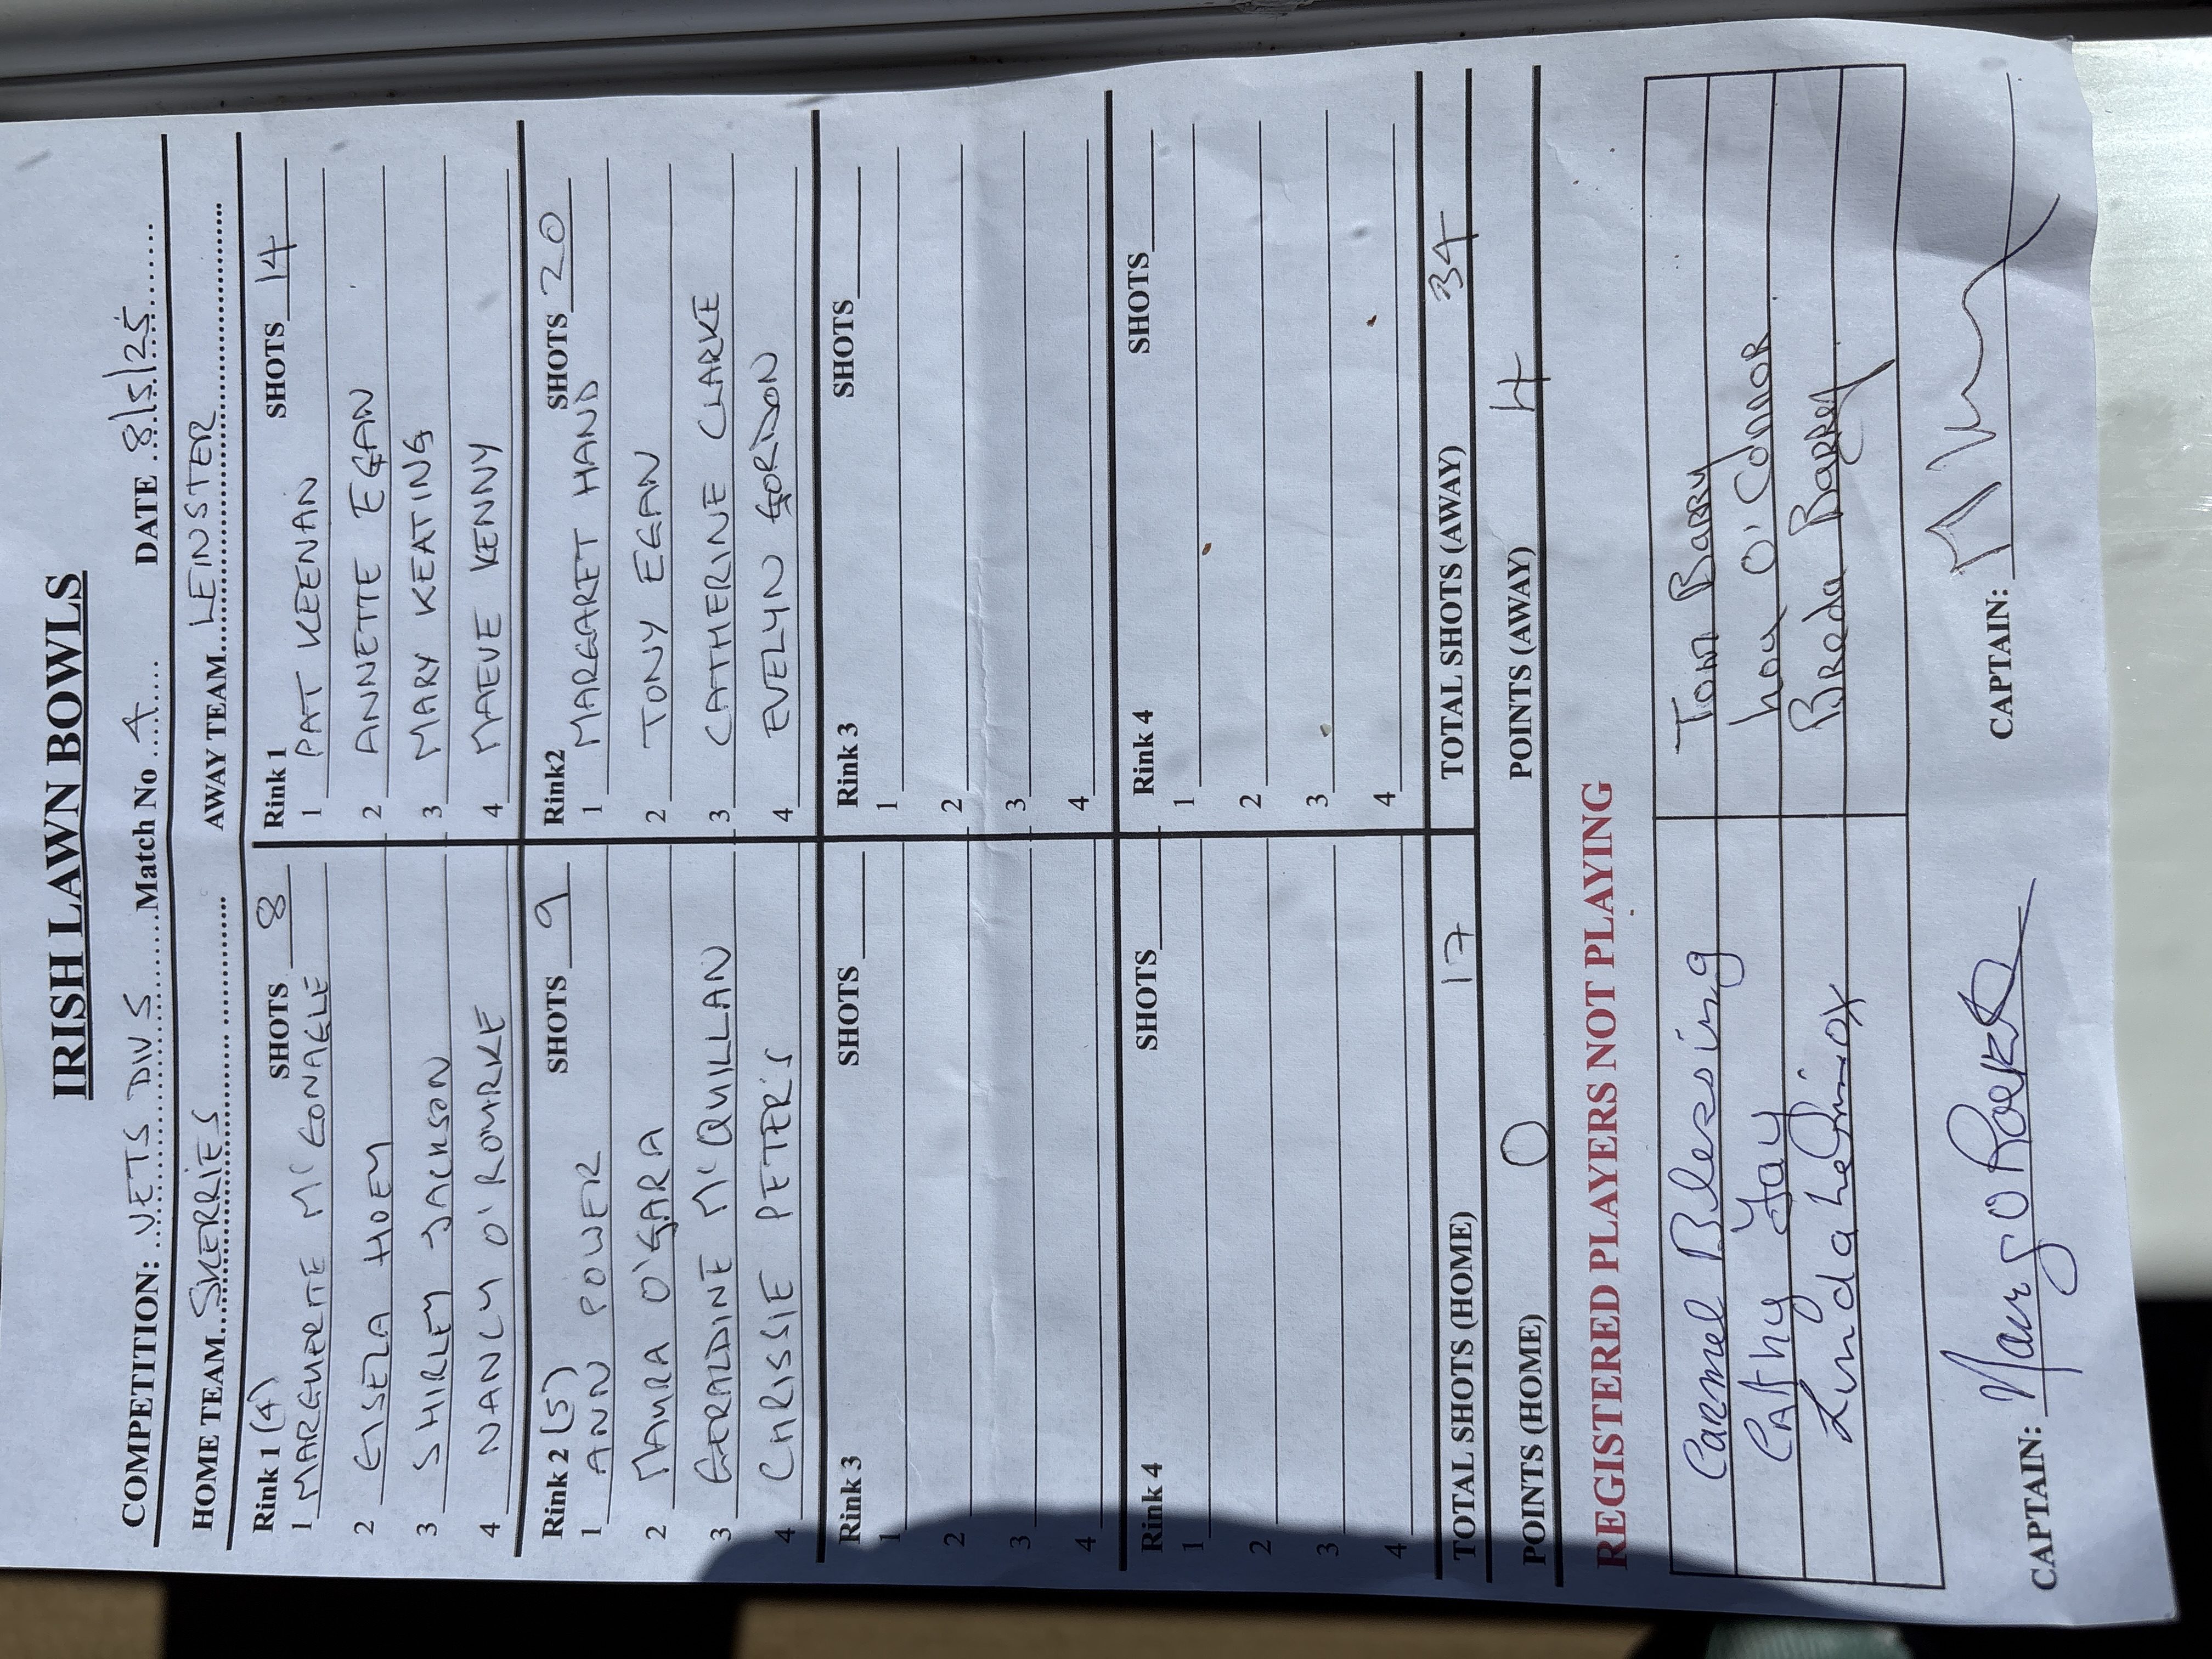 IRISH LAWN BOWLS
COMPETITION: VETS DIV 5 Match No 4 DATE 8/5/25
HOME TEAM SKERRIES AWAY TEAM LEINSTER
Rink 1 (4) SHOTS 8 Rink 1 SHOTS 14
1 MARGUERITE McGONAGLE 1 PAT KEENAN
2 GISELA HOEY 2 ANNETTE EGAN
3 SHIRLEY JACKSON 3 MARY KEATING
4 NANCY O'ROURKE 4 MAEVE KENNY
Rink 2 (5) SHOTS 9 Rink2 SHOTS 20
1 ANN POWER 1 MARGARET HAND
2 MAURA O'GARA 2 TONY EGAN
3 GERALDINE McQUILLAN 3 CATHERINE CLARKE
4 CHRISSIE PETER'S 4 EVELYN GORDON
Rink 3 SHOTS Rink 3 SHOTS
1 1
2 2
3 3
4 4
Rink 4 SHOTS Rink 4 SHOTS
1 1
2 2
3 3
4 4
TOTAL SHOTS (HOME) 17 TOTAL SHOTS (AWAY) 34
POINTS (HOME) 0 POINTS (AWAY) 4
REGISTERED PLAYERS NOT PLAYING
Carmel Blessing Tom Barry
Cathy Jay O'Connor
Linda Breda Barry
CAPTAIN: CAPTAIN: